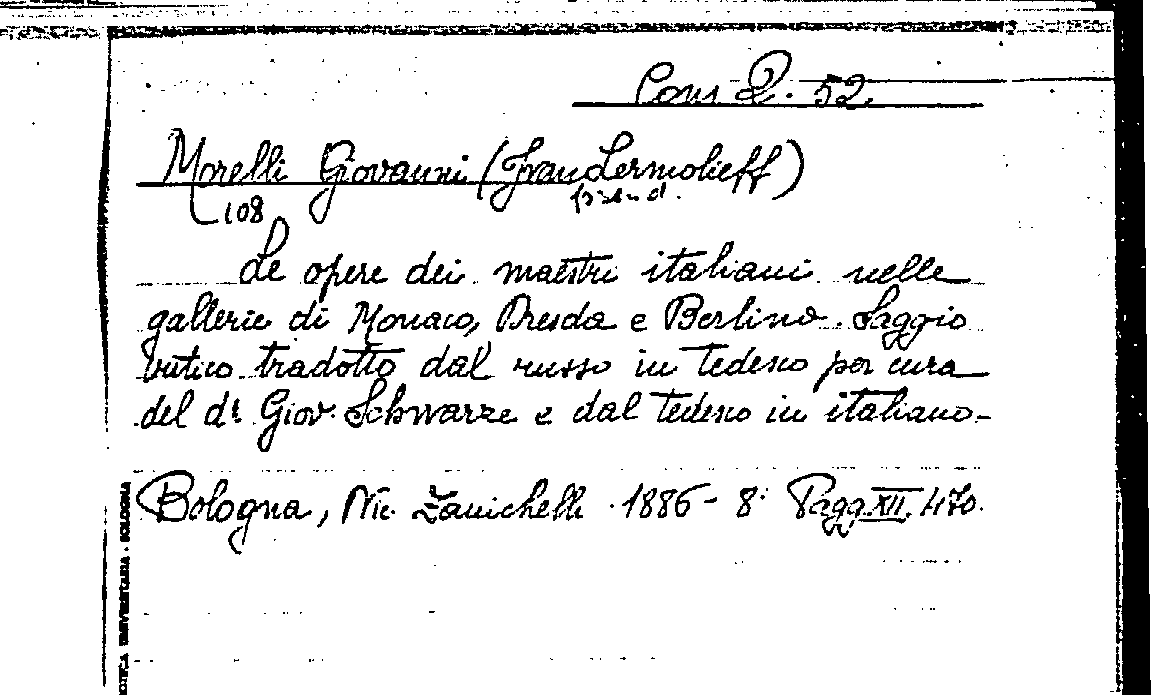 Cons Q. 52.
Morelli Giovanni (Ivan Lermolieff)
108 pseud.
Le opere dei maestri italiani nelle
gallerie di Monaco, Dresda e Berlino. Saggio
critico tradotto dal russo in tedesco per cura
del dr Giov. Schwarze e dal tedesco in italiano-
Bologna, Nic. Zanichelli. 1886- 8: Pagg. XII, 470.
BIBLIOTECA UNIVERSITARIA - BOLOGNA